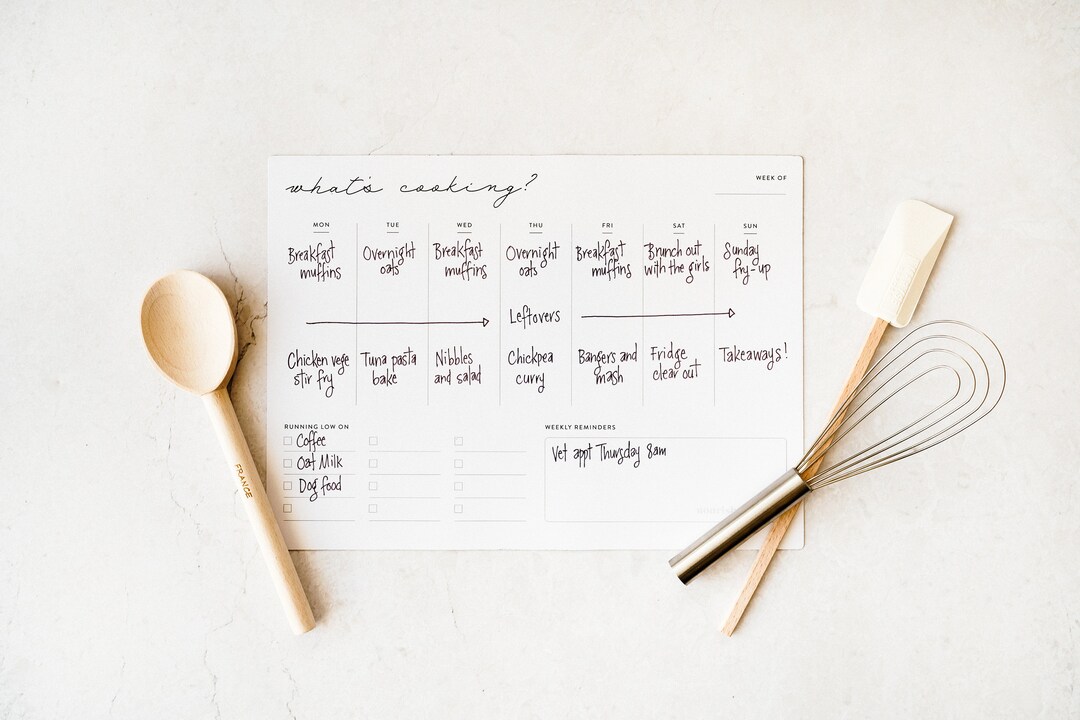 what's cooking?
WEEK OF
MON TUE WED THU FRI SAT SUN
Breakfast muffins
Overnight oats
Breakfast muffins
Overnight oats
Breakfast muffins
Brunch out with the girls
Sunday fry-up
Leftovers
Chicken vege stir fry
Tuna pasta bake
Nibbles and salad
Chickpea curry
Bangers and mash
Fridge clear out
Takeaways!
RUNNING LOW ON
Coffee
Oat Milk
Dog food
WEEKLY REMINDERS
Vet appt Thursday 8am
FRANCE